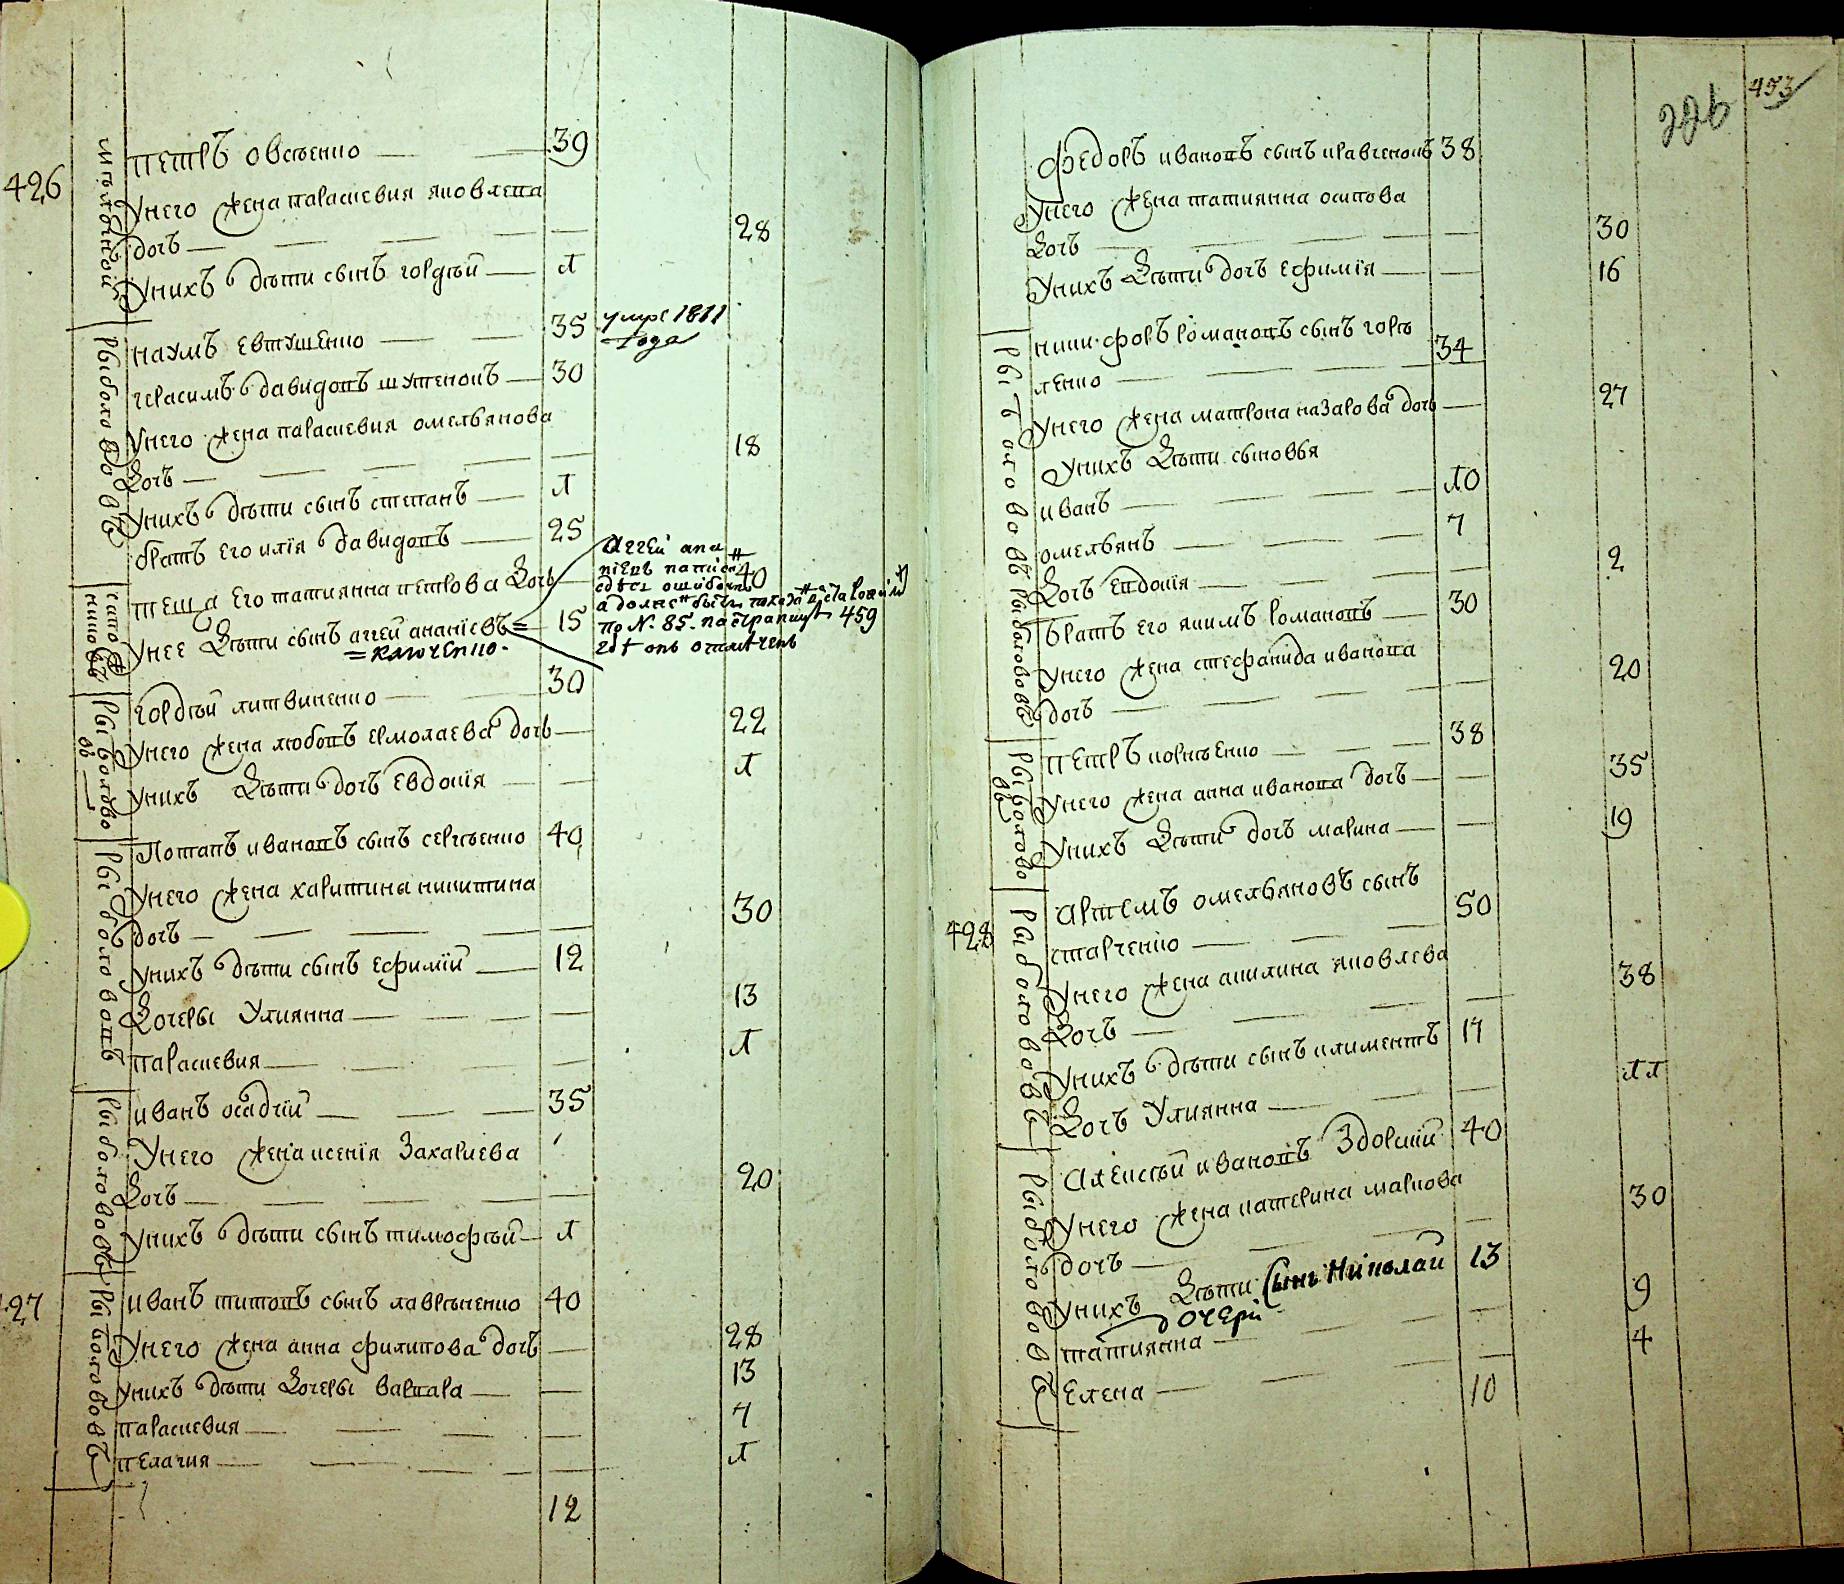 426
Петръ Овсѣенко 39
У него жена Параскевия Яковлева
дочь 28
У нихъ дѣти сынъ Гордѣй 1
Рыболововъ
Наумъ Евтушенко 35 умре 1811
года
Герасимъ Давидовъ Шутенокъ 30
У него жена Параскевия Омельянова
дочь 18
У нихъ дѣти сынъ Степанъ 1
братъ его Илїя Давидовъ 25
теща его Татиянна Петрова дочь 40
У нее дѣти сынъ Аггей Ананїевъ = 15
= Ключенко.
Аггей Ана
нїевъ написа
здѣсь ошибочно
по N. 85. на страницѣ 459
гдѣ онъ отмѣченъ
сапожниковъ
Рыболовово
въ
Гордѣй Литвиненко 30
У него жена Любовъ Ермолаева дочь 22
У нихъ дѣти дочь Евдокїя 1
Рыболововъ
Потапъ Ивановъ сынъ Сергѣенко 40
У него жена Харитина Никитина
дочь 30
У нихъ дѣти сынъ Ефимїй 12
дочеры Улиянна 13
Параскевия 1
Рыболововъ
Иванъ Осадчїй 35
У него жена Ксенїя Захариева
дочь 20
У нихъ дѣти сынъ Тимофѣй 1
427
Рыболововъ
Иванъ Титовъ сынъ Лаврѣненко 40
У него жена Анна Филипова дочь 28
У нихъ дѣти дочеры Варвара 13
Параскевия 7
Пелагия 1
12
453
226
Федоръ Ивановъ сынъ Кравченокъ 38
У него жена Татиянна Осипова
дочь 30
У нихъ дѣти дочь Ефимїя 16
Рыболововъ
Никифоръ Романовъ сынъ Горѣ
ленко 34
У него жена Матрона Назарова дочь 27
У нихъ дѣти сыновья
Иванъ 10
Омельянъ 7
дочь Евдокїя 2
Рыболововъ
братъ его Якимъ Романовъ 30
У него жена Стефанида Иванова
дочь 20
Рыболовово
въ
Петръ Корнѣенко 38
У него жена Анна Иванова дочь 35
У нихъ дѣти дочь Марина 19
428
Рыболововъ
Артемъ Омельяновъ сынъ
Старченко 50
У него жена Акилина Яковлева
дочь 38
У нихъ дѣти сынъ Климентъ 17
дочь Улиянна 11
Рыболововъ
Алексѣй Ивановъ Здорикїй 40
У него жена Катерина Маркова
дочь 30
У нихъ дѣти сынъ Николай 13
дочери
Татиянна 9
Елена 4
10